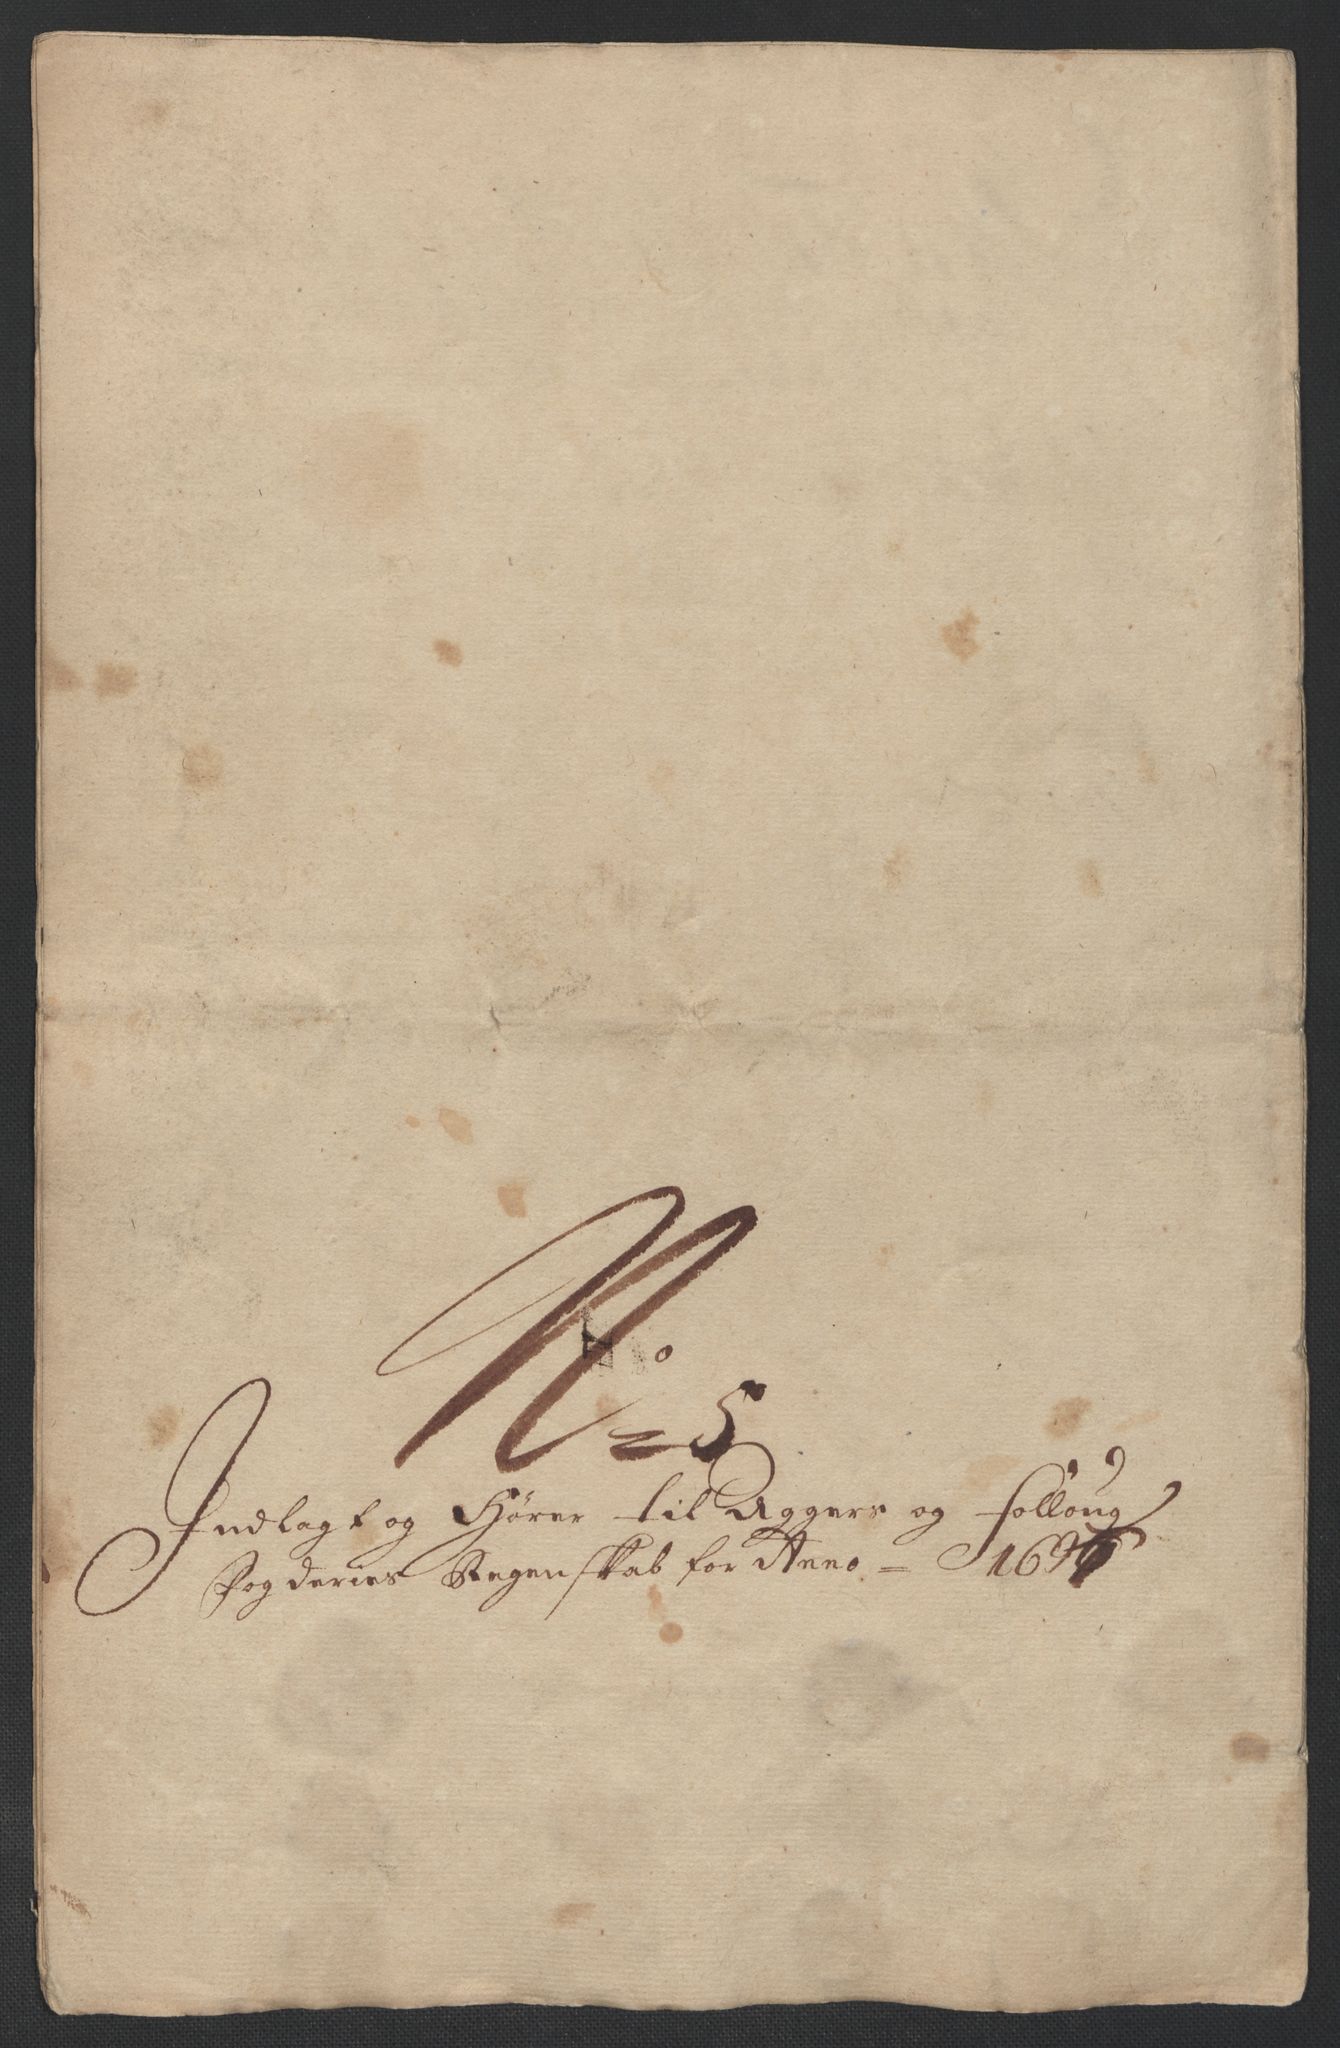 No 5
Indlagt og Hörer til Aggers og folloug
fogderies Regenskab for Anno = 1696